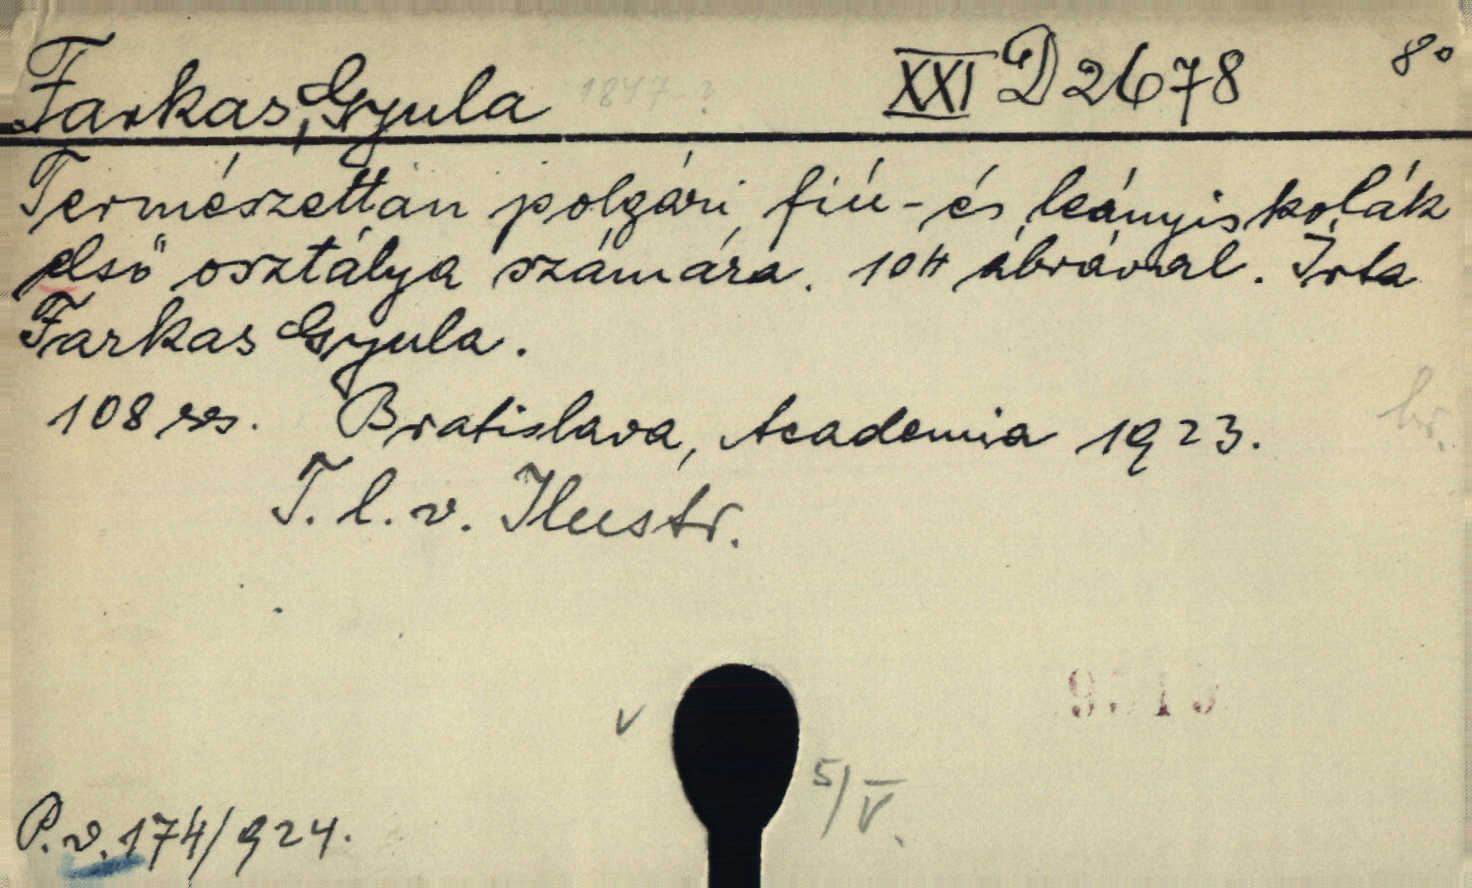 Farkas, Gyula 1847-? XXI D 2678 8°
Természettan polgári fiú- és leányiskolák
első osztálya számára. 104 ábrával. Írta
Farkas Gyula.
108 res. Bratislava, Academia 1923.
br.
T. l. v. Ilustr.
v
5/V.
P.v. 174/924.